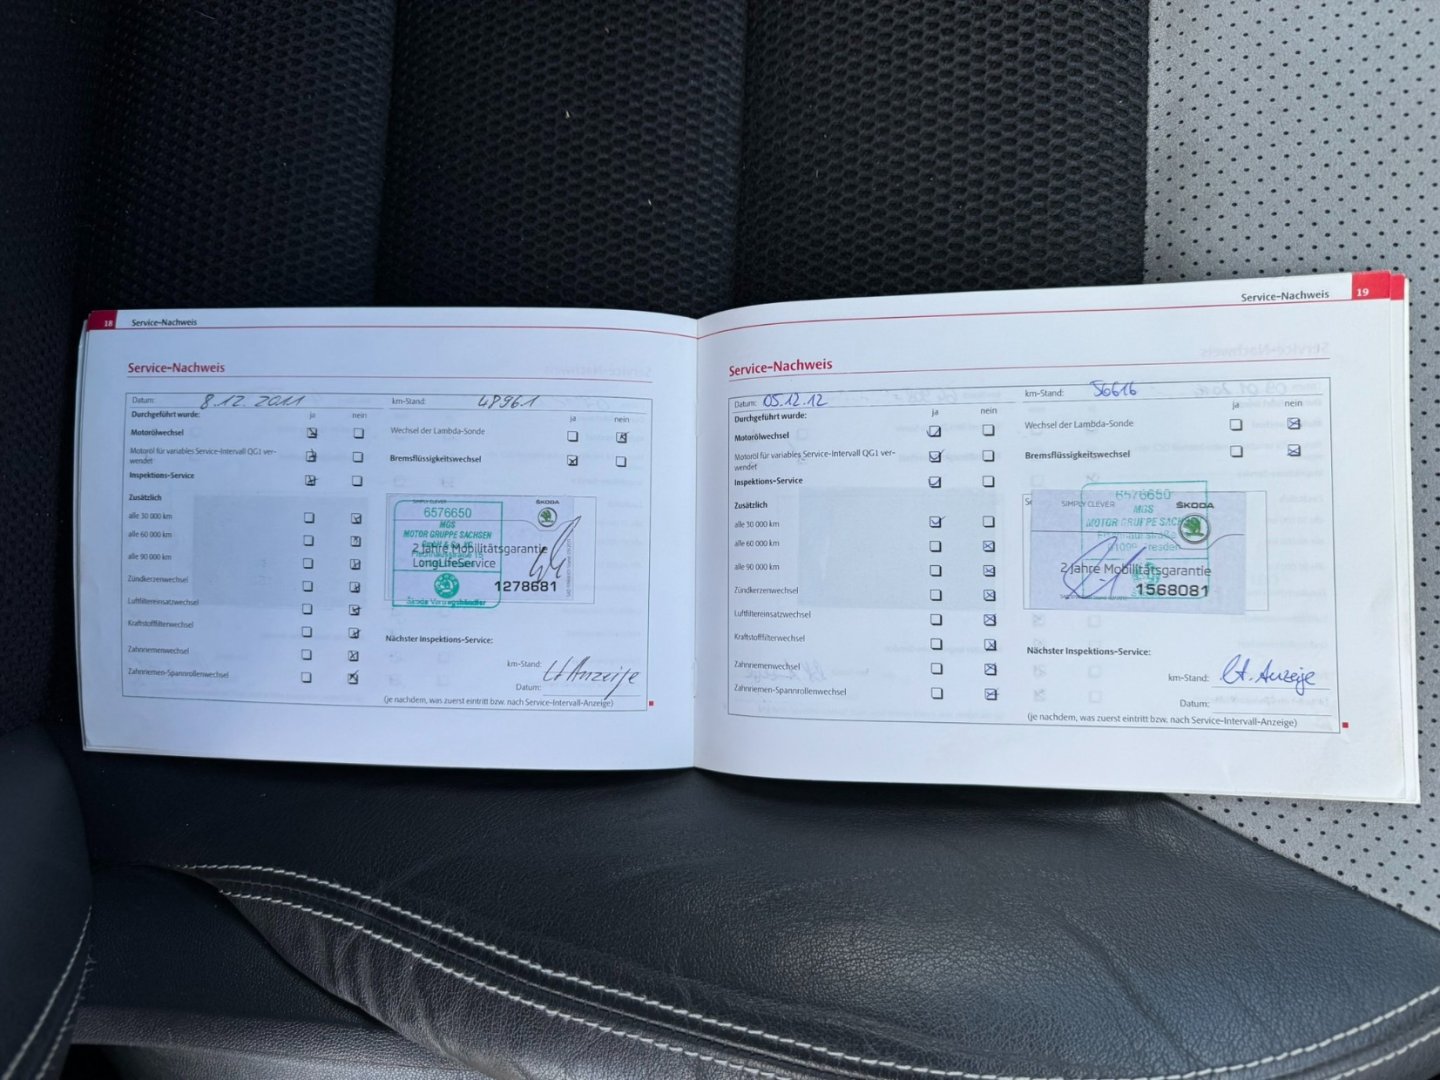 18 Service-Nachweis
Service-Nachweis
Datum: 8.12.2011 km-Stand: 48961
Durchgeführt wurde: ja nein ja nein
Motorölwechsel Wechsel der Lambda-Sonde
Motoröl für variables Service-Intervall QG1 ver-
wendet Bremsflüssigkeitswechsel
Inspektions-Service
Zusätzlich
alle 30 000 km
alle 60 000 km
alle 90 000 km
Zündkerzenwechsel
Luftfiltereinsatzwechsel
Kraftstofffilterwechsel
Zahnriemenwechsel
Zahnriemen-Spannrollenwechsel
SIMPLY CLEVER ŠKODA
6576650
MGS
MOTOR GRUPPE SACHSEN
GmbH & Co. KG
2 Jahre Mobilitätsgarantie
LongLifeService
1278681
Škoda Vertragshändler
Nächster Inspektions-Service:
km-Stand: lt Anzeige
Datum:
(je nachdem, was zuerst eintritt bzw. nach Service-Intervall-Anzeige)
Service-Nachweis 19
Service-Nachweis
Datum: 05.12.12 km-Stand: 56616
Durchgeführt wurde: ja nein ja nein
Motorölwechsel Wechsel der Lambda-Sonde
Motoröl für variables Service-Intervall QG1 ver-
wendet Bremsflüssigkeitswechsel
Inspektions-Service
Zusätzlich
alle 30 000 km
alle 60 000 km
alle 90 000 km
Zündkerzenwechsel
Luftfiltereinsatzwechsel
Kraftstofffilterwechsel
Zahnriemenwechsel
Zahnriemen-Spannrollenwechsel
SIMPLY CLEVER ŠKODA
6576650
MGS
MOTOR GRUPPE SACHSEN
2 Jahre Mobilitätsgarantie
1568081
Nächster Inspektions-Service:
km-Stand: lt. Anzeige
Datum:
(je nachdem, was zuerst eintritt bzw. nach Service-Intervall-Anzeige)